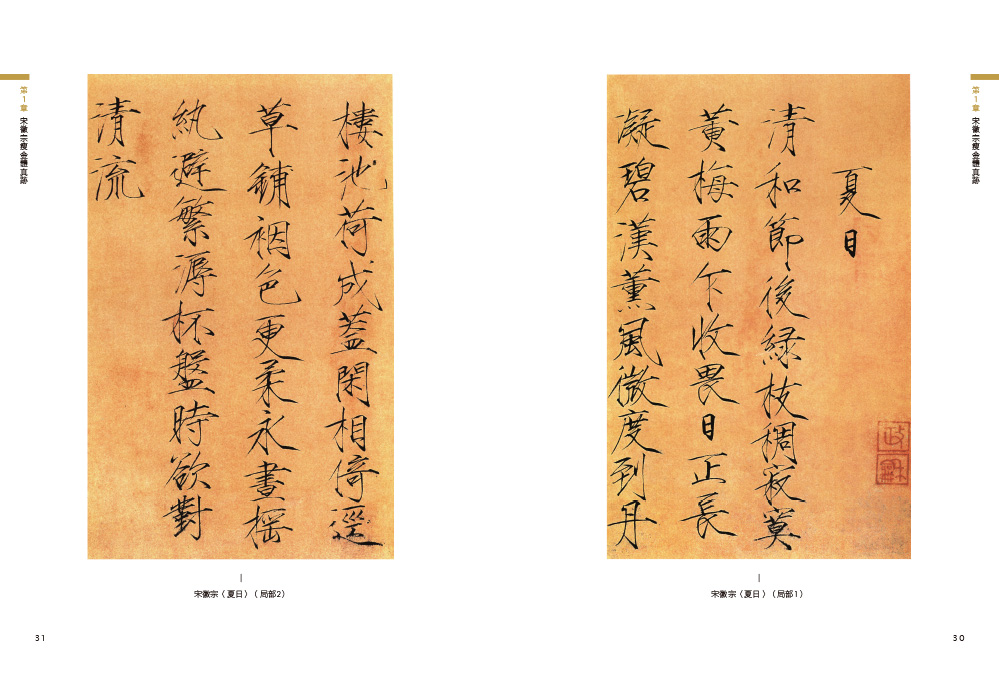 第1章 宋徽宗瘦金體真跡
夏日
清和節後緑枝稠寂寞
黃梅雨乍收畏日正長
凝碧漢薰風微度到丹
政龢
宋徽宗〈夏日〉（局部1）
30
樓池荷成蓋閑相倚逕
草鋪裀色更柔永晝搖
紈避繁溽杯盤時欲對
清流
宋徽宗〈夏日〉（局部2）
31
第1章 宋徽宗瘦金體真跡